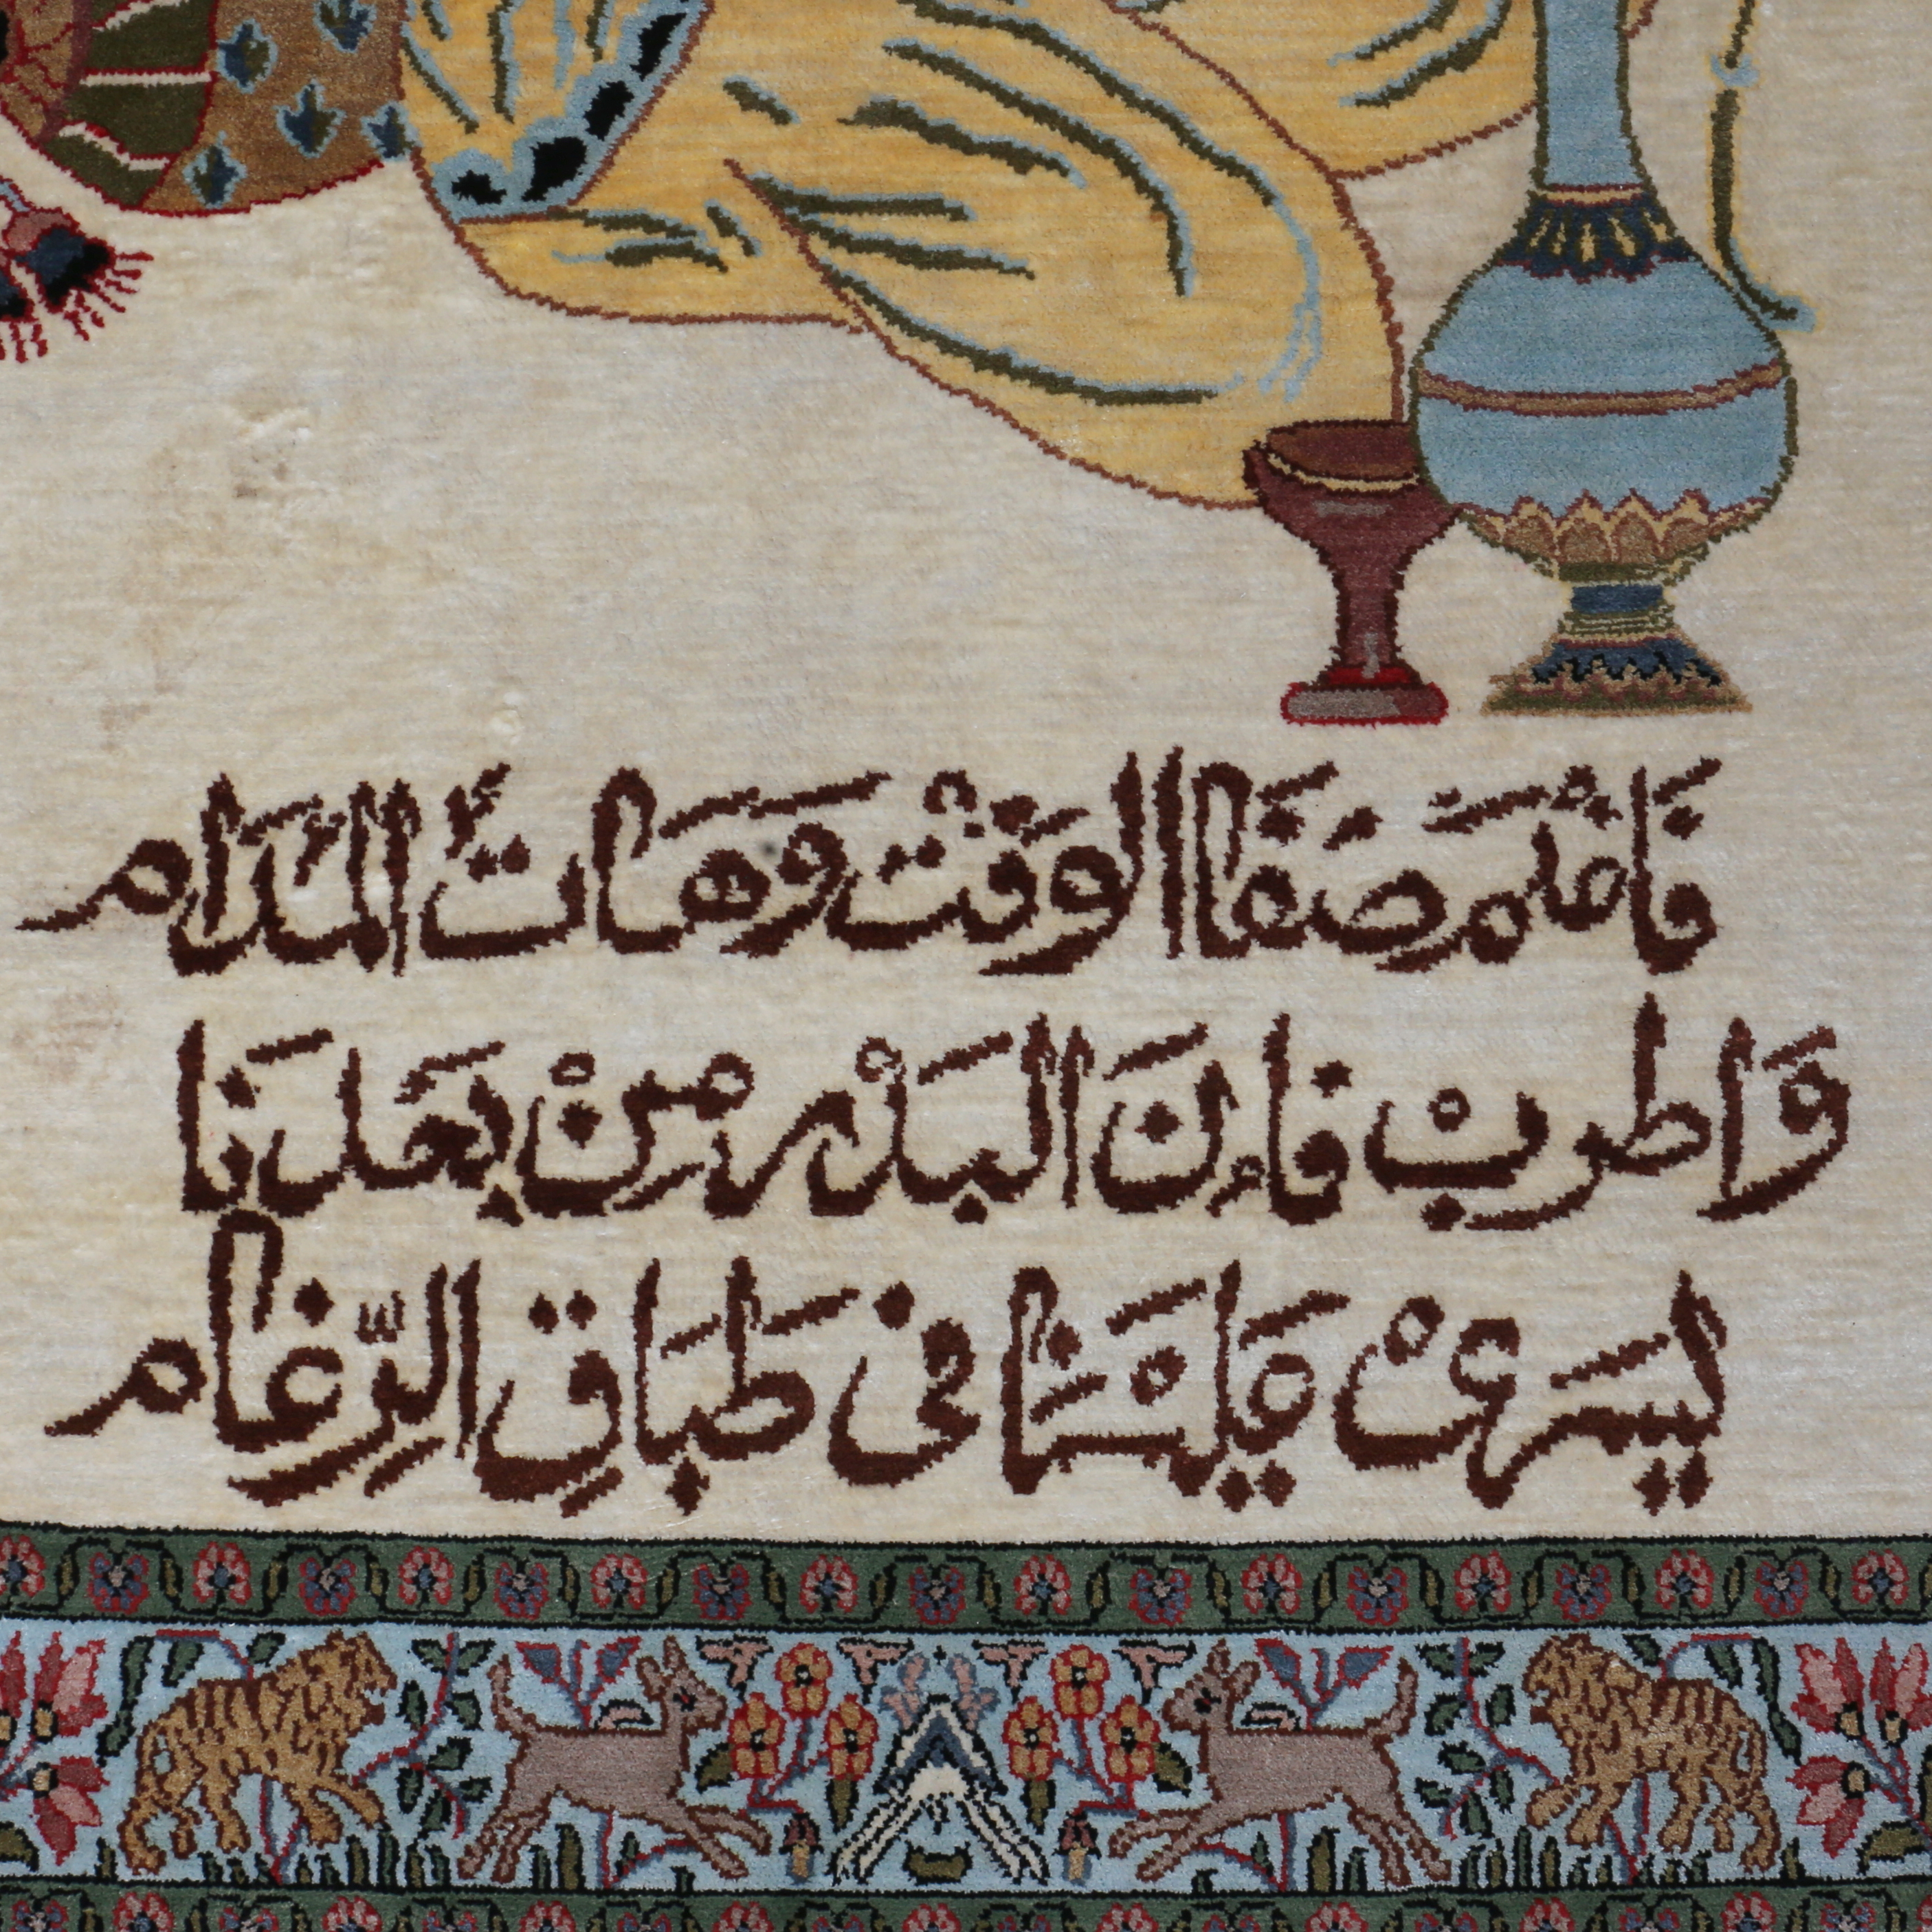 فَاغْنَم صَفَا الوَقْتْ وَهَاتِ المُدَام
وَاطربْ فَإنَ البَدْر مِنْ بَعدنَا
يَسرى عَلَينَا فى طَبَاقِ الرِّغَام